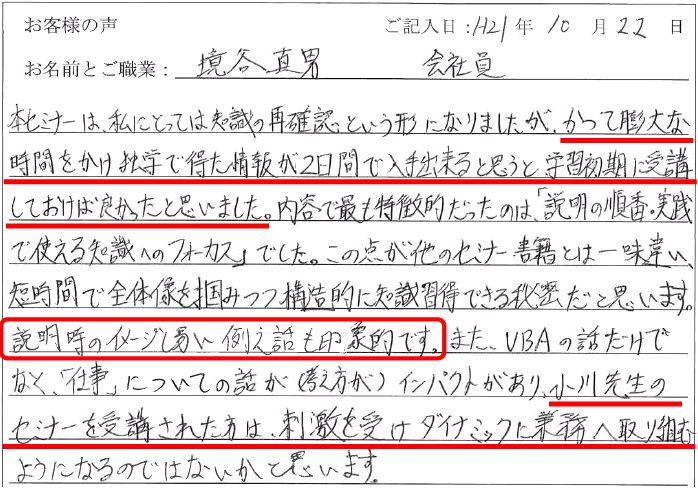 お客様の声 ご記入日：H21 年 10 月 22 日
お名前とご職業： 境谷真男 会社員
本セミナーは、私にとっては知識の再確認、という形になりましたが、かつて膨大な
時間をかけ独学で得た情報が2日間で入手出来ると思うと、学習初期に受講
しておけば良かったと思いました。内容で最も特徴的だったのは、「説明の順番・実践
で使える知識へのフォーカス」でした。この点が他のセミナー書籍とは一味違い、
短時間で全体像を掴みつつ構造的に知識習得できる秘密だと思います。
説明時のイメージし易い例え話も印象的です。また、VBAの話だけで
なく、「仕事」についての話が（考え方が）インパクトがあり、小川先生の
セミナーを受講された方は、刺激を受けダイナミックに業務へ取り組む
ようになるのではないかと思います。